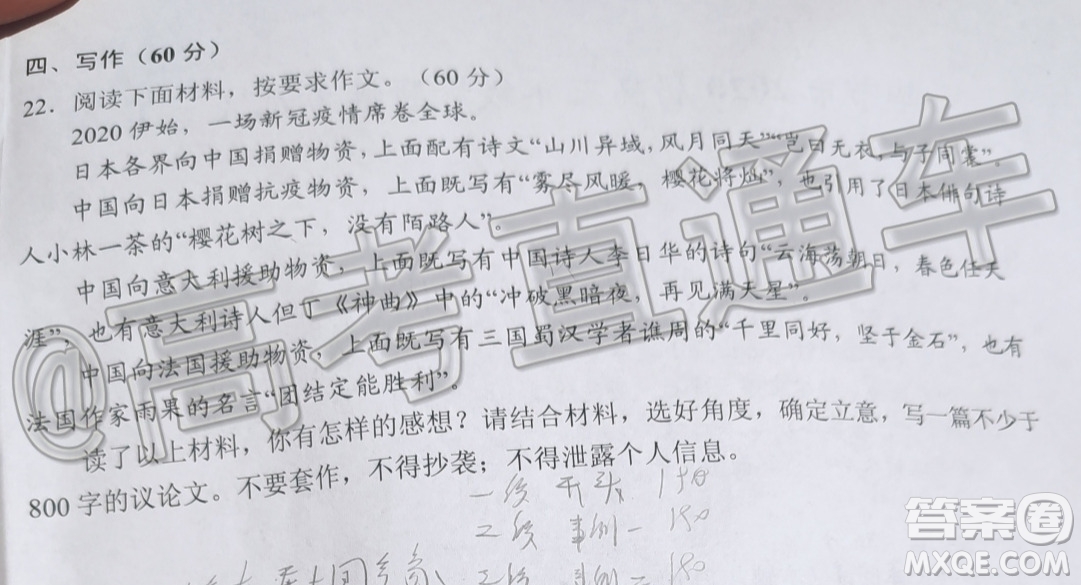 四、写作（60 分）
22. 阅读下面材料，按要求作文。（60 分）
2020 伊始，一场新冠疫情席卷全球。
日本各界向中国捐赠物资，上面配有诗文“山川异域，风月同天”“岂曰无衣，与子同裳”。
中国向日本捐赠抗疫物资，上面既写有“雾尽风暖，樱花将灿”，也引用了日本俳句诗
人小林一茶的“樱花树之下，没有陌路人”。
中国向意大利援助物资，上面既写有中国诗人李日华的诗句“云海荡朝日，春色任天
涯”，也有意大利诗人但丁《神曲》中的“冲破黑暗夜，再见满天星”。
中国向法国援助物资，上面既写有三国蜀汉学者谯周的“千里同好，坚于金石”，也有
法国作家雨果的名言“团结定能胜利”。
读了以上材料，你有怎样的感想？请结合材料，选好角度，确定立意，写一篇不少于
800 字的议论文。不要套作，不得抄袭；不得泄露个人信息。
一段 开头
二段 事例一 150
@高考直通车
答案圈
MXQE.COM